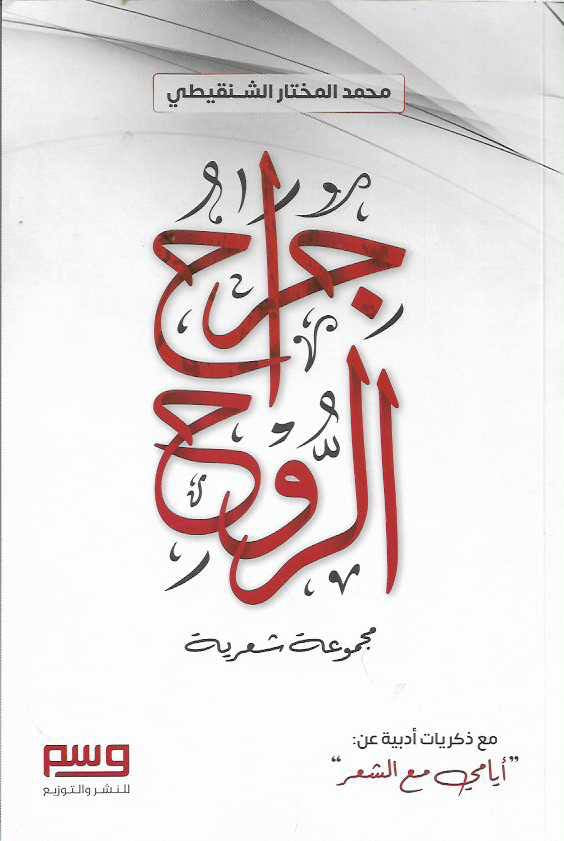 محمد المختار الشنقيطي
جراح
الرُّوح
مجموعة شعرية
مع ذكريات أدبية عن:
"أيامي مع الشعر"
وسم
للنشر والتوزيع